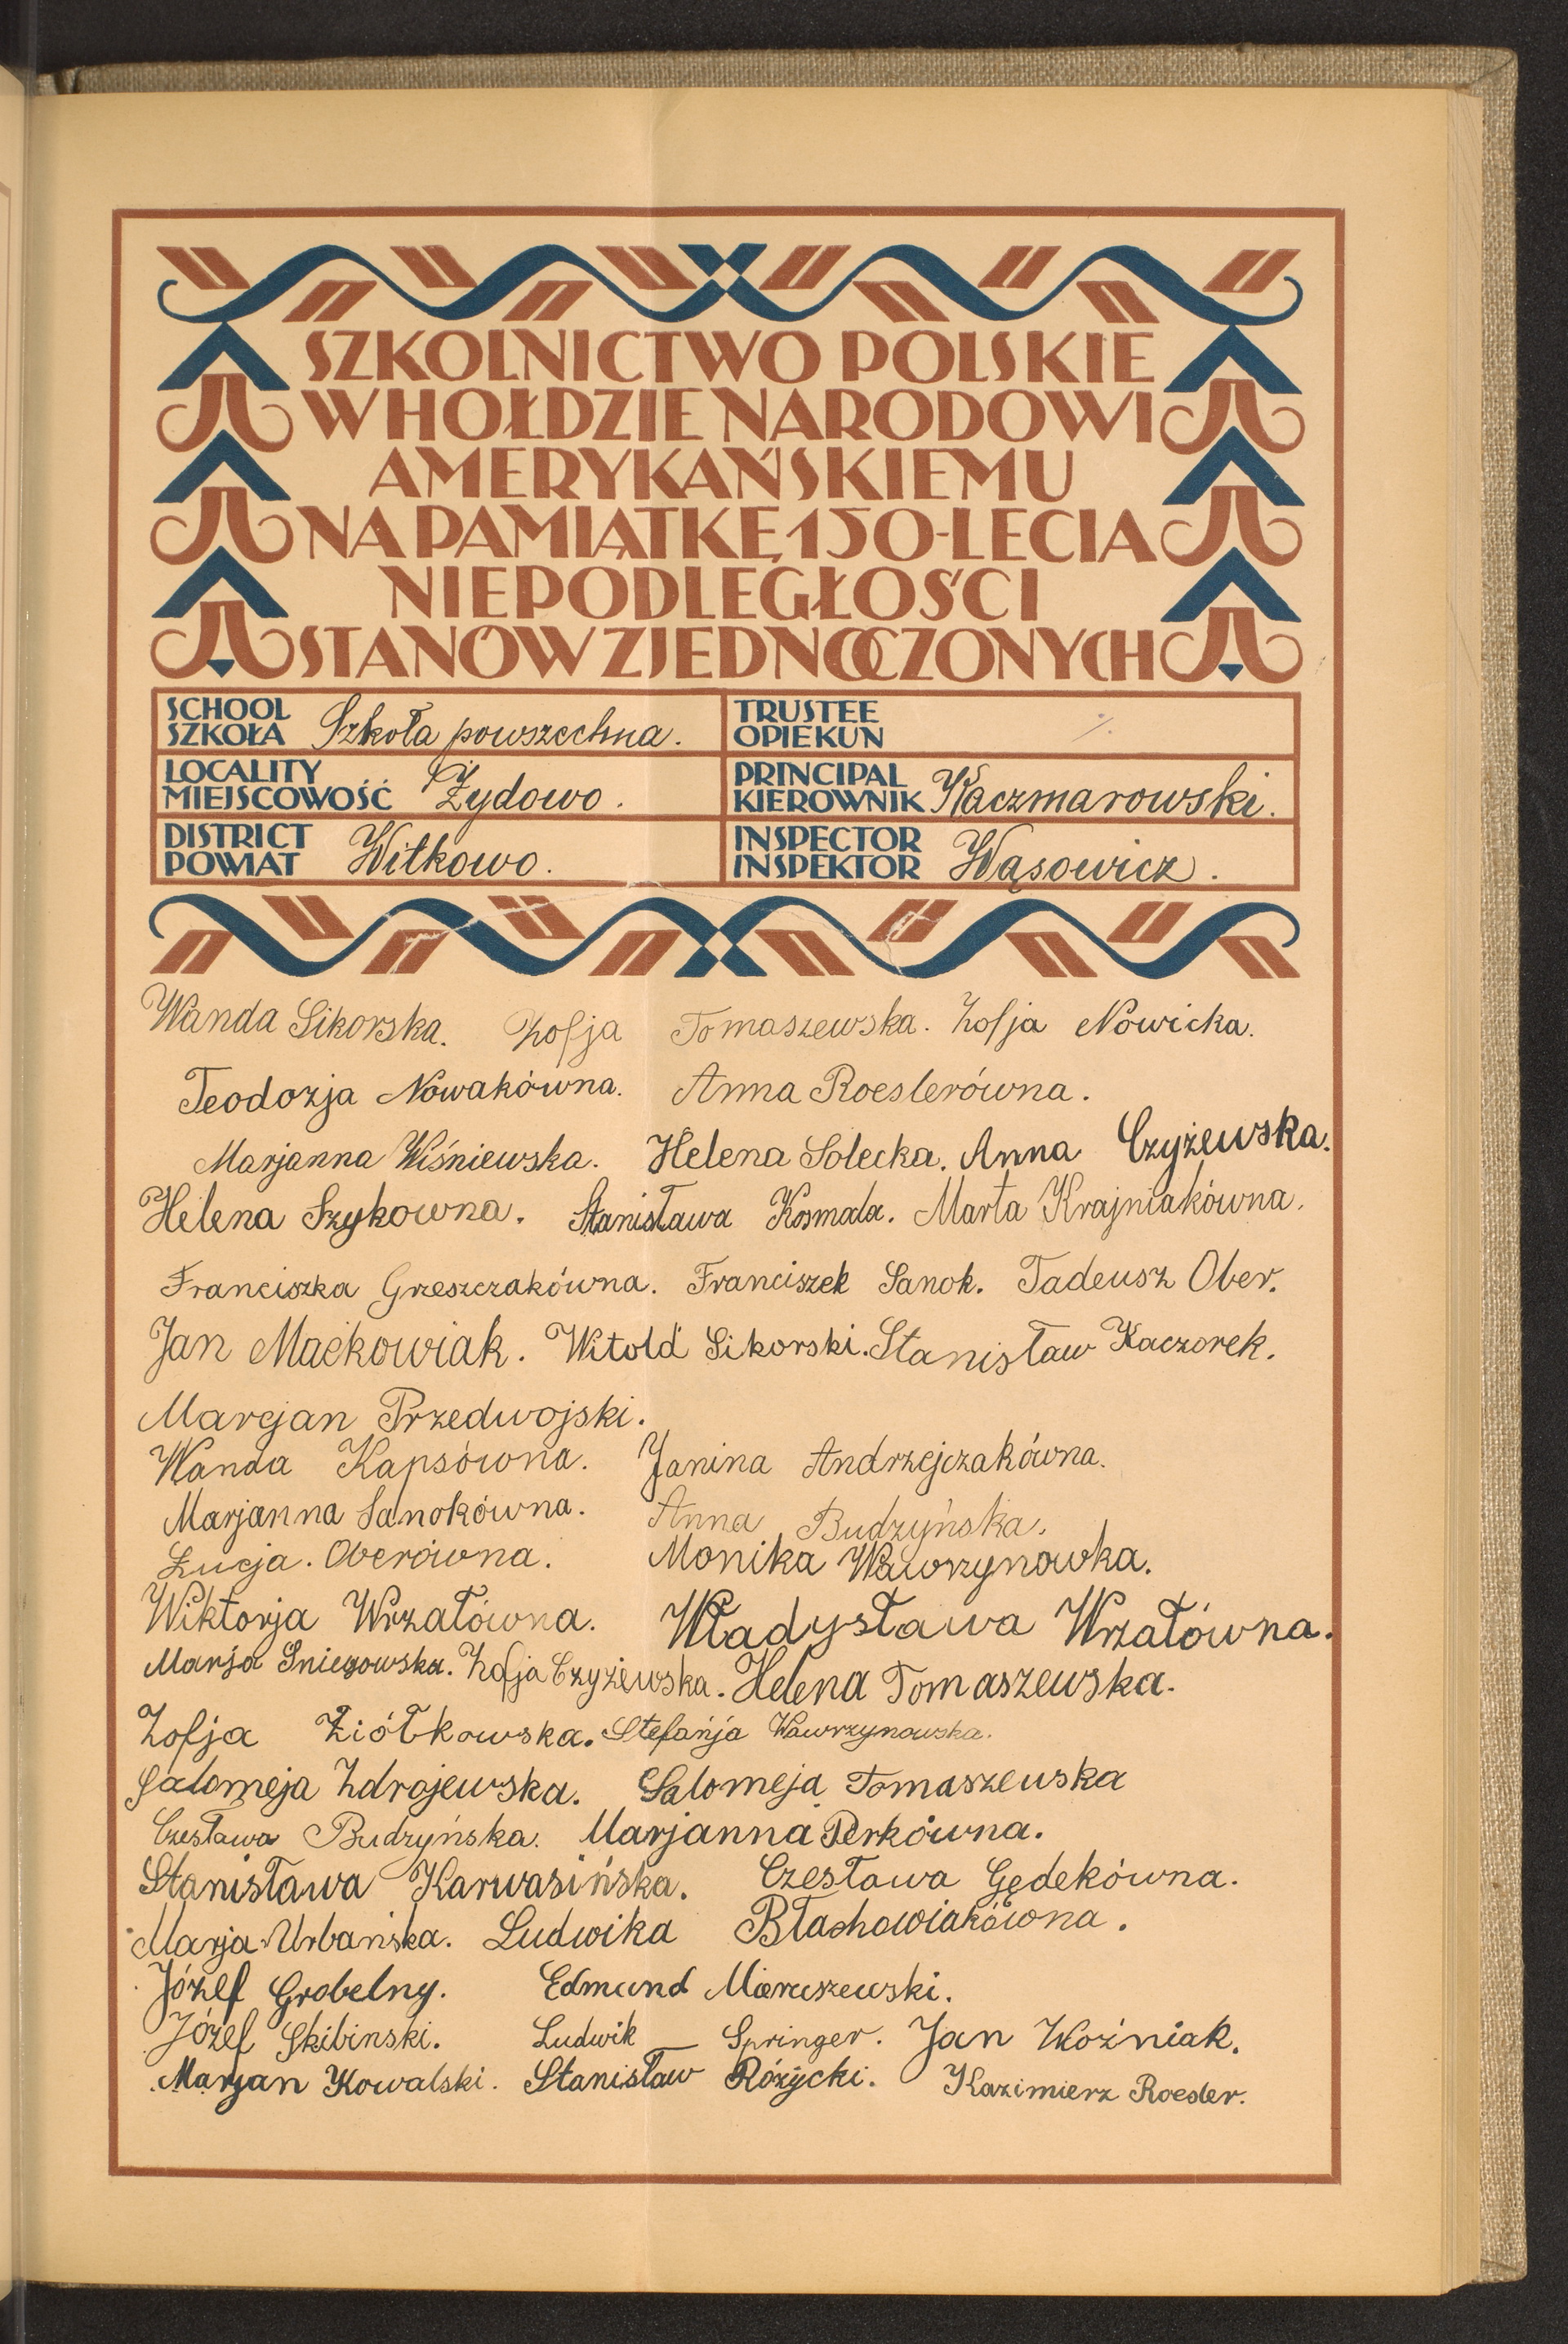 SZKOLNICTWO POLSKIE
W HOŁDZIE NARODOWI
AMERYKAŃSKIEMU
NA PAMIĄTKĘ 150-LECIA
NIEPODLEGŁOŚCI
STANÓW ZJEDNOCZONYCH
SCHOOL
SZKOŁA Szkoła powszechna.
TRUSTEE
OPIEKUN
LOCALITY
MIEJSCOWOŚĆ Żydowo.
PRINCIPAL
KIEROWNIK Kaczmarowski.
DISTRICT
POWIAT Witkowo.
INSPECTOR
INSPEKTOR Wąsowicz.
Wanda Sikorska. Zofja Tomaszewska. Zofja Nowicka.
Teodozja Nowakówna. Anna Roeslerówna.
Marjanna Wiśniewska. Helena Solecka. Anna Czyżewska.
Helena Szykowna. Stanisława Kosmala. Marta Krajniakówna.
Franciszka Greszczakówna. Franciszek Sanok. Tadeusz Ober.
Jan Maćkowiak. Witold Sikorski. Stanisław Kaczorek.
Marcjan Przedwojski.
Wanda Kapsówna. Janina Andrzejczakówna.
Marjanna Sanokówna. Anna Budzyńska.
Łucja. Oberówna. Monika Wawrzynowka.
Wiktorja Wrzałówna. Władysława Wrzałówna.
Marja Sniegowska. Zofja Czyżewska. Helena Tomaszewska.
Zofja Ziółkowska. Stefanja Wawrzynowska.
Salomeja Zdrojewska. Salomeja Tomaszewska
Czesława Budzyńska. Marjanna Perkówna.
Stanisława Karwasińska. Czesława Gędekówna.
Marja Urbańska. Ludwika Błachowiakówna.
Józef Grobelny. Edmund Maruszewski.
Józef Skibinski. Ludwik Springer. Jan Woźniak.
Marjan Kowalski. Stanisław Różycki. Kazimierz Roesler.